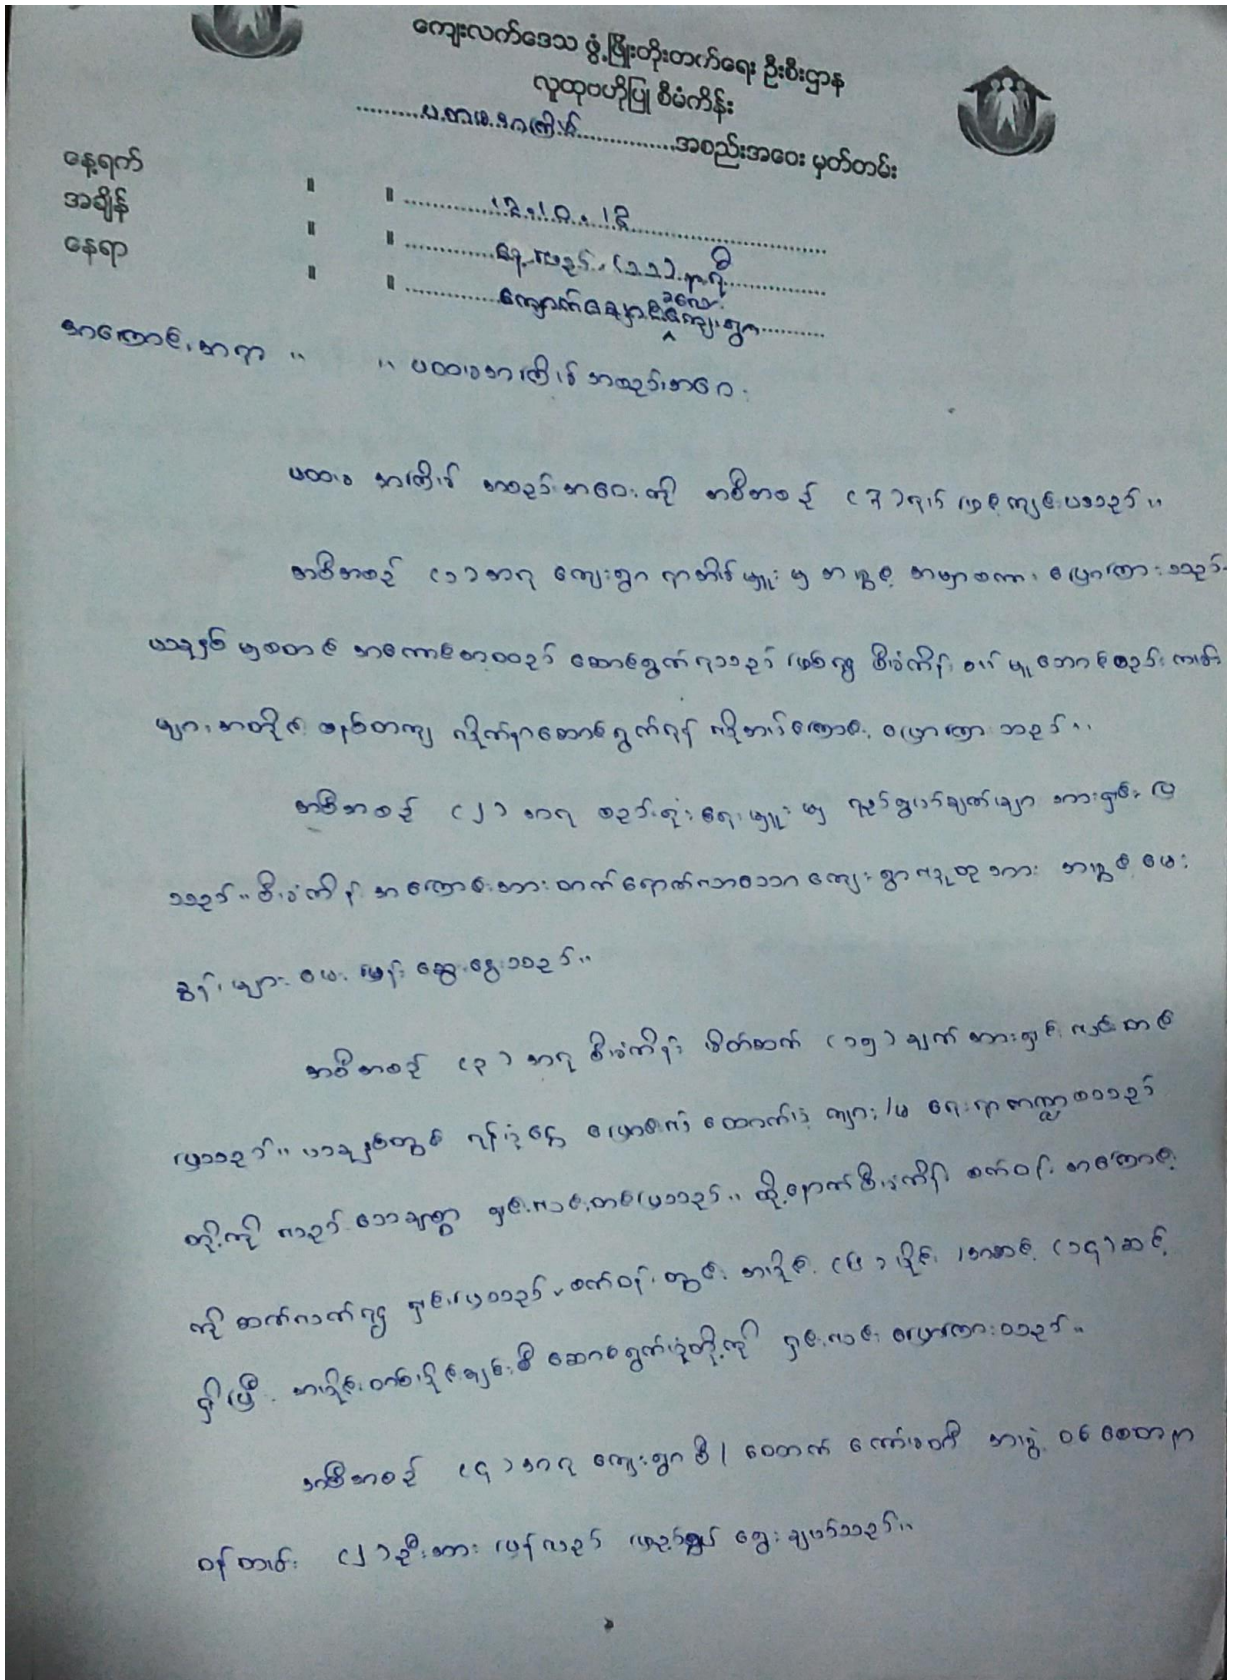 ကျေးလက်ဒေသ ဖွံ့ဖြိုးတိုးတက်ရေး ဦးစီးဌာန
လူထုဗဟိုပြု စီမံကိန်း
ပထမအကြိမ် အစည်းအဝေး မှတ်တမ်း
နေ့ရက် ။ ။ ၁၃.၁၀.၁၆
အချိန် ။ ။ နေ့လည် (၁၁) နာရီ
နေရာ ။ ။ ကျောက်ချောင်းကျေးရွာ
အကြောင်းအရာ ။ ။ ပထမအကြိမ် အစည်းအဝေး
ပထမ အကြိမ် အစည်းအဝေးကို အစီအစဉ် (၇)ရပ်ဖြင့်ကျင်းပသည်။
အစီအစဉ် (၁)အရ ကျေးရွာ ရာအိမ်မှူးမှ အဖွင့် အမှာစကား ပြောကြားသည်။
ယခုနှစ်မှစတင် အကောင်အထည် ဆောင်ရွက်ရသည် ဖြစ်၍ စီမံကိန်း စည်းကမ်း
များအတိုင်း လိုက်နာဆောင်ရွက်ရန် လိုအပ်ကြောင်း ပြောကြားသည်။
အစီအစဉ် (၂) အရ စည်းရုံးရေးမှူးမှ ရည်ရွယ်ချက်များအားရှင်းပြ
သည်။ စီမံကိန်း အကြောင်းအား တက်ရောက်လာသော ကျေးရွာလူထုအား အဖွင့်မေး
ခွန်းများ မေးမြန်းဆွေးနွေးသည်။
အစီအစဉ် (၃) အရ စီမံကိန်း မိတ်ဆက် (၁၅) ချက်အားရှင်းလင်းတင်
ပြသည်။ ယခုနှစ်တွင် ရန်ပုံငွေ ထောက်ပံ့ ကျား/မ ရေးရာ
တို့ကိုလည်း သေချာစွာ ရှင်းလင်းတင်ပြသည်။ ထို့နောက်စီမံကိန်း စက်ဝန်း အကြောင်း
ကို ဆက်လက်၍ ရှင်းပြသည်။ စက်ဝန်းတွင် အပိုင်း (၆) ပိုင်း၊ အဆင့် (၁၄)ဆင့်
ရှိပြီး အပိုင်းတစ်ပိုင်းချင်းစီ ဆောင်ရွက်ပုံတို့ကို ရှင်းလင်း ပြောကြားသည်။
အစီအစဉ် (၄) အရ ကျေးရွာစီ/ထောက် ကော်မတီ အဖွဲ့ဝင် စေတနာ့
ဝန်ထမ်း (၂)ဦးအား ပြန်လည် ဖြည့်စွက် ရွေးချယ်သည်။